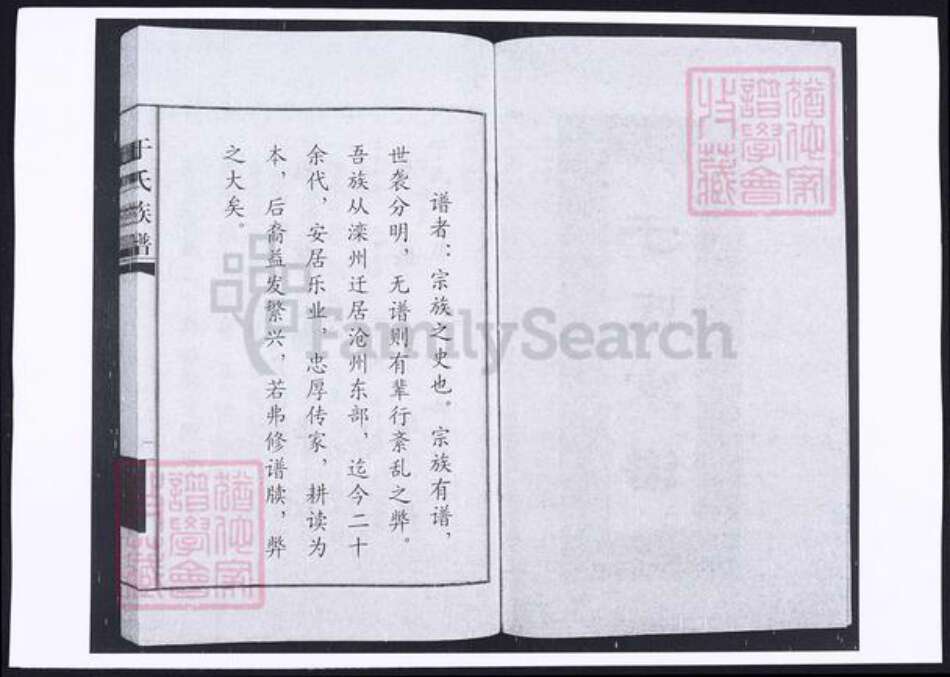 谱者：宗族之史也。宗族有谱，
世袭分明，无谱则有辈行紊乱之弊。
吾族从滦州迁居沧州东部，迄今二十
余代，安居乐业，忠厚传家，耕读为
本，后裔益发繁兴，若弗修谱牍，弊
之大矣。
于氏族谱
一
FamilySearch
猶他家
譜學會
收藏
猶他家
譜學會
收藏